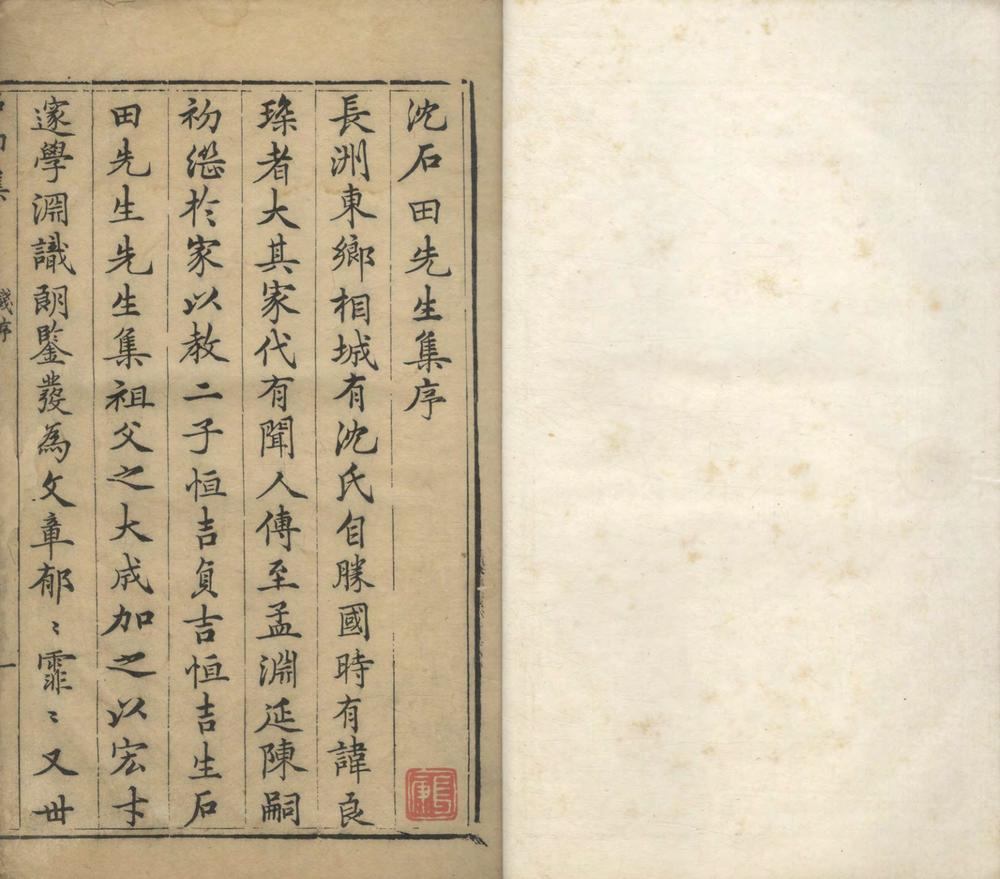 沈石田先生集序
長洲東鄉相城有沈氏自勝國時有諱良
琛者大其家代有聞人傳至孟淵延陳嗣
初繼於家以教二子恒吉貞吉恒吉生石
田先生先生集祖父之大成加之以宏才
邃學淵識朗鑒發為文章郁〻霏〻又世